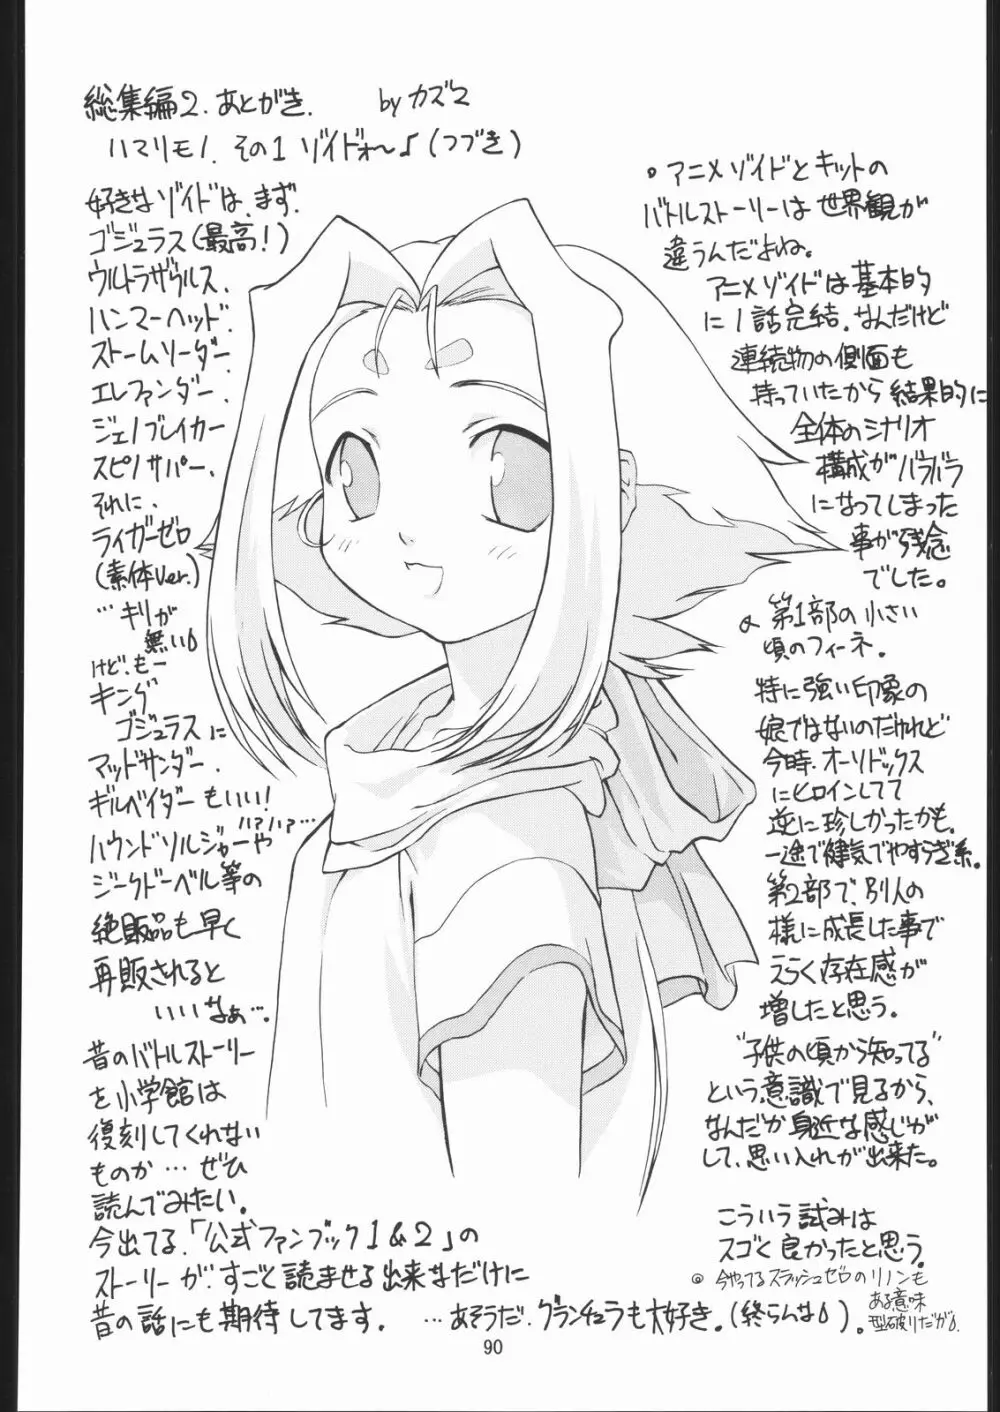 総集編2.あとがき. by カズマ
ハマリモノ.その1 ゾイドォ〜♪(つづき)
好きなゾイドは、まず.
ゴジュラス(最高!)
ウルトラザウルス.
ハンマーヘッド.
ストームソーダー.
エレファンダー.
ジェノブレイカー
スピノサパー.
それに.
ライガーゼロ
(素体Ver.)
…キリが
無い
けど.もー
キング
ゴジュラスに
マッドサンダー.
ギルベイダーもいい!
ハァハァ…
ハウンドソルジャーや
ジークドーベル等の
絶版品も早く
再販されると
いいなぁ….
昔のバトルストーリー
を小学館は
復刻してくれない
ものか…ぜひ
読んでみたい.
今出てる.「公式ファンブック1&2」の
ストーリーが.すごと読ませる出来なだけに
昔の話にも期待してます. …あそうだ.グランチュラも大好き.(終らんな).
。アニメゾイドとキットの
バトルストーリーは世界観が
違うんだよね。
アニメゾイドは基本的
に1話完結.なんだけど
連続物の側面も
持っていたから結果的に
全体のシナリオ
構成がバラバラ
になってしまった
事が残念
でした。
第1部の小さい
頃のフィーネ.
特に強い印象の
娘ではないのだけれど
今時.オーソドックス
にヒロインしてて
逆に珍しかったかも.
一途で健気でやすらぎ系.
第2部で、別人の
様に成長した事で
えらく存在感が
増したと思う.
"子供の頃から知ってる"
という意識で見るから、
なんだか身近な感じが
して、思い入れが出来た。
こういう試みは
スゴく良かったと思う.
◎今やってるスラッシュゼロのリノンも
ある意味
型破りだが.
90